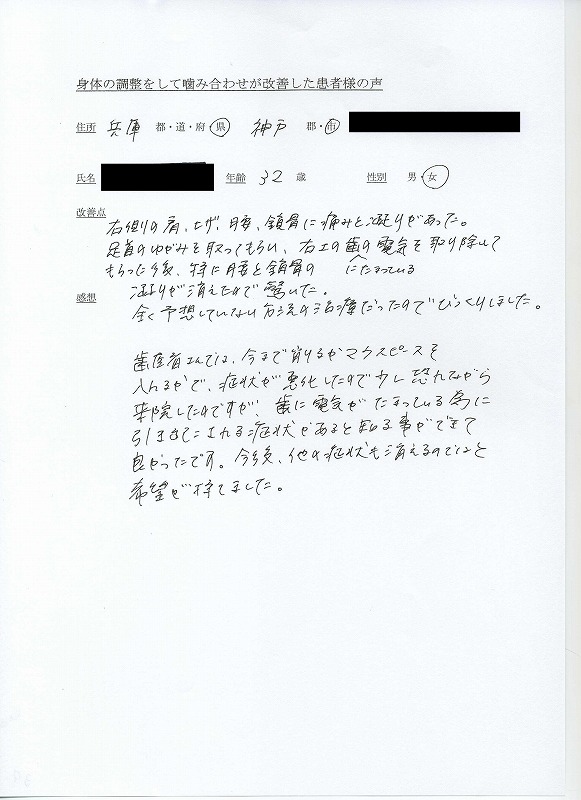 身体の調整をして噛み合わせが改善した患者様の声
住所 兵庫 都・道・府・県 神戸 郡・市
氏名 年齢 32 歳 性別 男・女
改善点
右側の肩、ヒザ、腰、鎖骨に痛みと凝りがあった。
足首のゆがみを取ってもらい、右上の歯の電気を取り除いて
もらった後、特に腰と鎖骨の にたまっている
凝りが消えたので驚いた。
感想
全く予想していない方法の治療だったのでびっくりしました。
歯医者さんでは、今まで削るかマウスピースを
入れるかで、症状が悪化したので少し恐れながら
来院したのですが、歯に電気がたまっている為に
引きおこされる症状があると知る事ができて
良かったです。今後、他の症状も消えるのではと
希望が持てました。